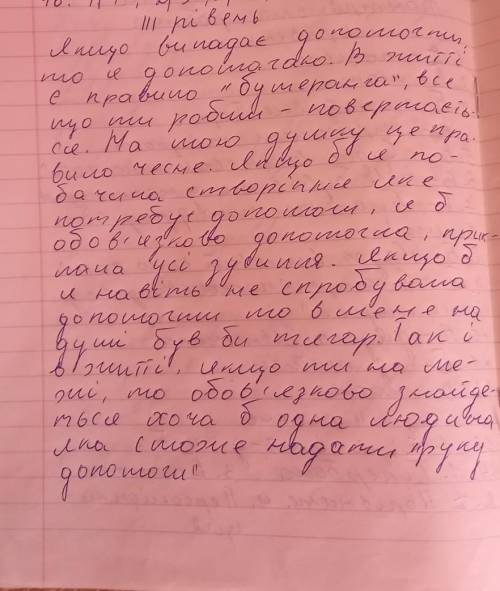 III рівень
Якщо випадає допомогти,
то я допомагаю. В житті
є правило "бумеранга", все
що ти робиш - повертаєть-
ся. На мою думку це пра-
вило чесне. Якщо б я по-
бачила створіння яке
потребує допомоги, я б
обов'язково допомогла, прик-
лала усі зусилля. Якщо б
я навіть не спробувала
допомогти то в мене на
душі був би тягар. Так і
в житті, якщо ти на ме-
жі, то обов'язково знайде-
ться хоча б одна людина
яка зможе надати "руку
допомоги"